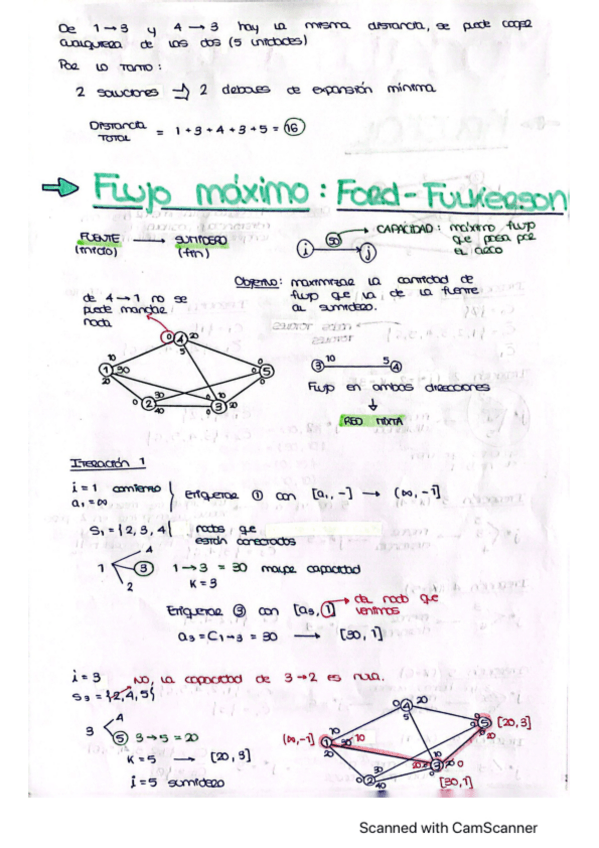 De 1→3 y 4→3 hay la misma distancia, se puede coger
cualquiera de los dos (5 unidades)
Por lo tanto:
2 soluciones → 2 árboles de expansión mínima
Distancia total = 1+3+4+3+5 = 16
→ Flujo máximo: Ford-Fulkerson
FUENTE → SUMIDERO
(inicio) (fin)
i 50 j
→ CAPACIDAD: máximo flujo
que pasa por
el arco
Objetivo: maximizar la cantidad de
flujo que va de la fuente
al sumidero.
de 4→1 no se
puede mandar
nada
0 4 20
5
10
1 30
20
0 5
0
30
0 2
40
10
0 3 20
0
3 10 5 4
Flujo en ambas direcciones
↓
RED MIXTA
Iteración 1
i = 1 comienzo
a₁ = ∞
Etiquetar 1 con [a₁, -] → (∞, -1]
S₁ = {2, 3, 4}
nodos que
están conectados
1 4 3 2
1→3 = 30 mayor capacidad
K = 3
Etiquetar 3 con [a₃, 1] → del nodo que
venimos
a₃ = C₁→₃ = 30 → [30, 1]
i = 3
NO, la capacidad de 3→2 es nula.
S₃ = {2,4,5}
3 4 5
3→5 = 20
K = 5 → [20, 3]
i = 5 sumidero
0 4 20
5
10
(∞, -1] 1 30 10
20
0 5 [20,3]
0
20
30
0 2
40
10
20 0 3 20 0
0
[30,1]
Scanned with CamScanner